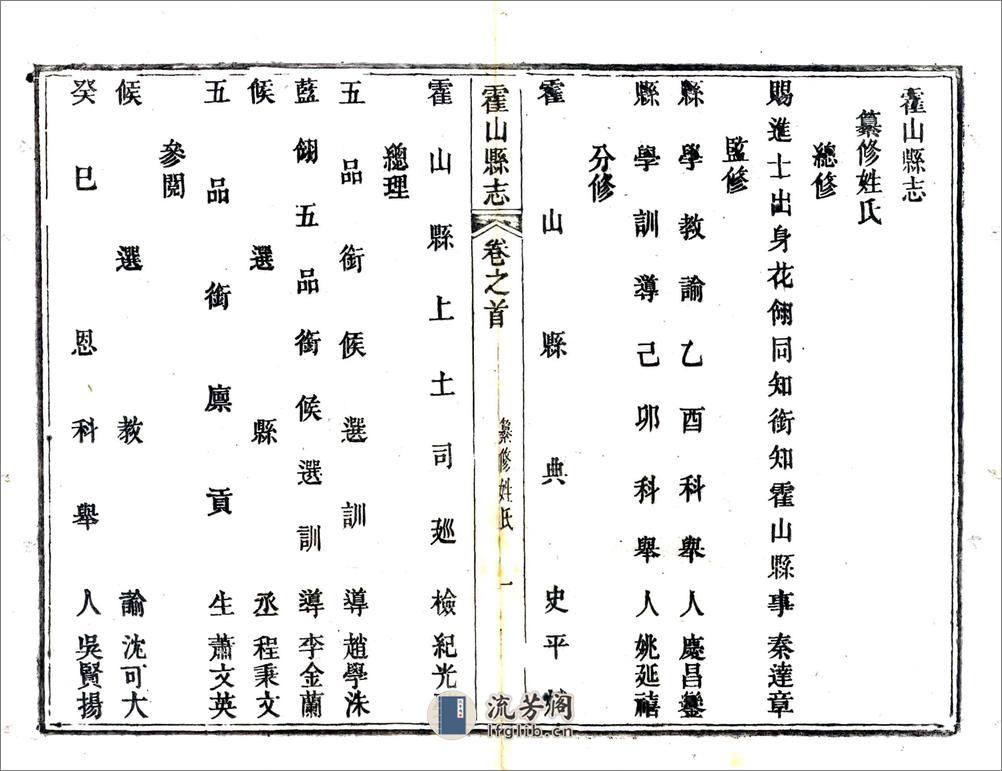 霍山縣志
纂修姓氏
總修
賜進士出身花翎同知銜知霍山縣事秦達章
監修
縣學教諭乙酉科舉人慶昌鑾
縣學訓導己卯科舉人姚延禧
分修
霍山縣典史平
霍山縣志
卷之首
纂修姓氏
一
霍山縣上土司廵檢紀光
總理
五品銜候選訓導趙學洙
藍翎五品銜候選訓導李金蘭
候選縣丞程秉文
五品銜廩貢生蕭文英
參閱
候選教諭沈可大
癸巳恩科舉人吳賢揚
流芳阁
lfglib.cn